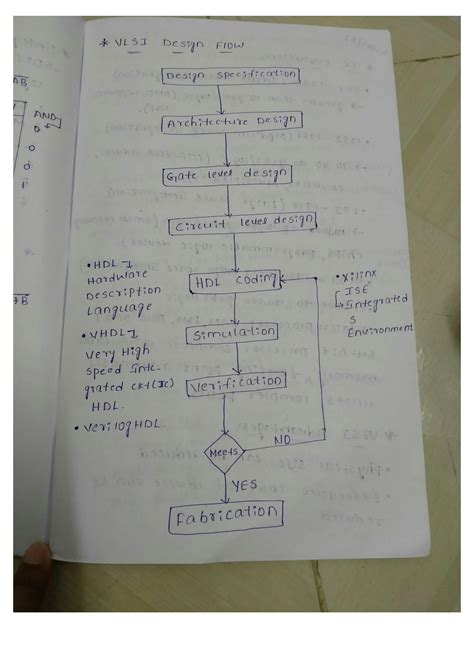 * VLSI Design Flow
Design specification
Architecture Design
Gate level design
Circuit level design
HDL Coding
Simulation
Verification
Meets
NO
YES
Fabrication
• HDL →
Hardware
Description
Language
• VHDL →
Very High
speed Inte-
grated ckt (IC)
HDL.
• VerilogHDL.
• Xilinx
ISE
Integrated
S
Environment
AB
AND
0
0
0
1
+B